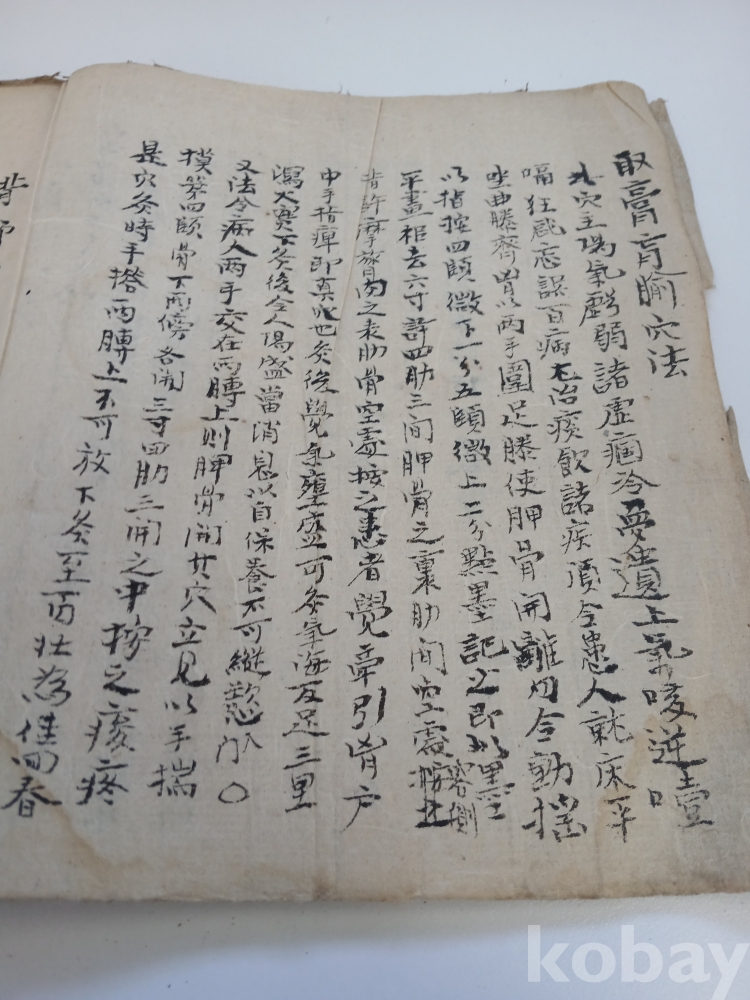 取膏肓腧穴法
此穴主陽氣虧弱諸虛痼冷夢遺上氣咳逆噎
噎狂惑忘誤百病尤治痰飲諸疾須令患人就床平
坐曲膝齊胷以兩手圍足膝使胛骨開離勿令動搖
以指按四顀微下一分五顀微上二分點墨記之即以墨
平畫相去六寸許四肋三間胛骨之裏肋間空處容側
指許摩膂肉之表肋骨空處按之患者覺牽引胷户
中手指痺即真穴也灸後覺氣壅盛可灸氣海及足三里
瀉火實下灸後令人陽盛當消息以自保養不可縱慾 ○
又法令病人兩手交在兩膊上則胛骨開其穴立見以手揣
摸第四顀骨下兩傍各開三寸四肋三間之中按之痠疼
是穴灸時手搭兩膊上不可放下灸至百壯爲佳回春
kobay